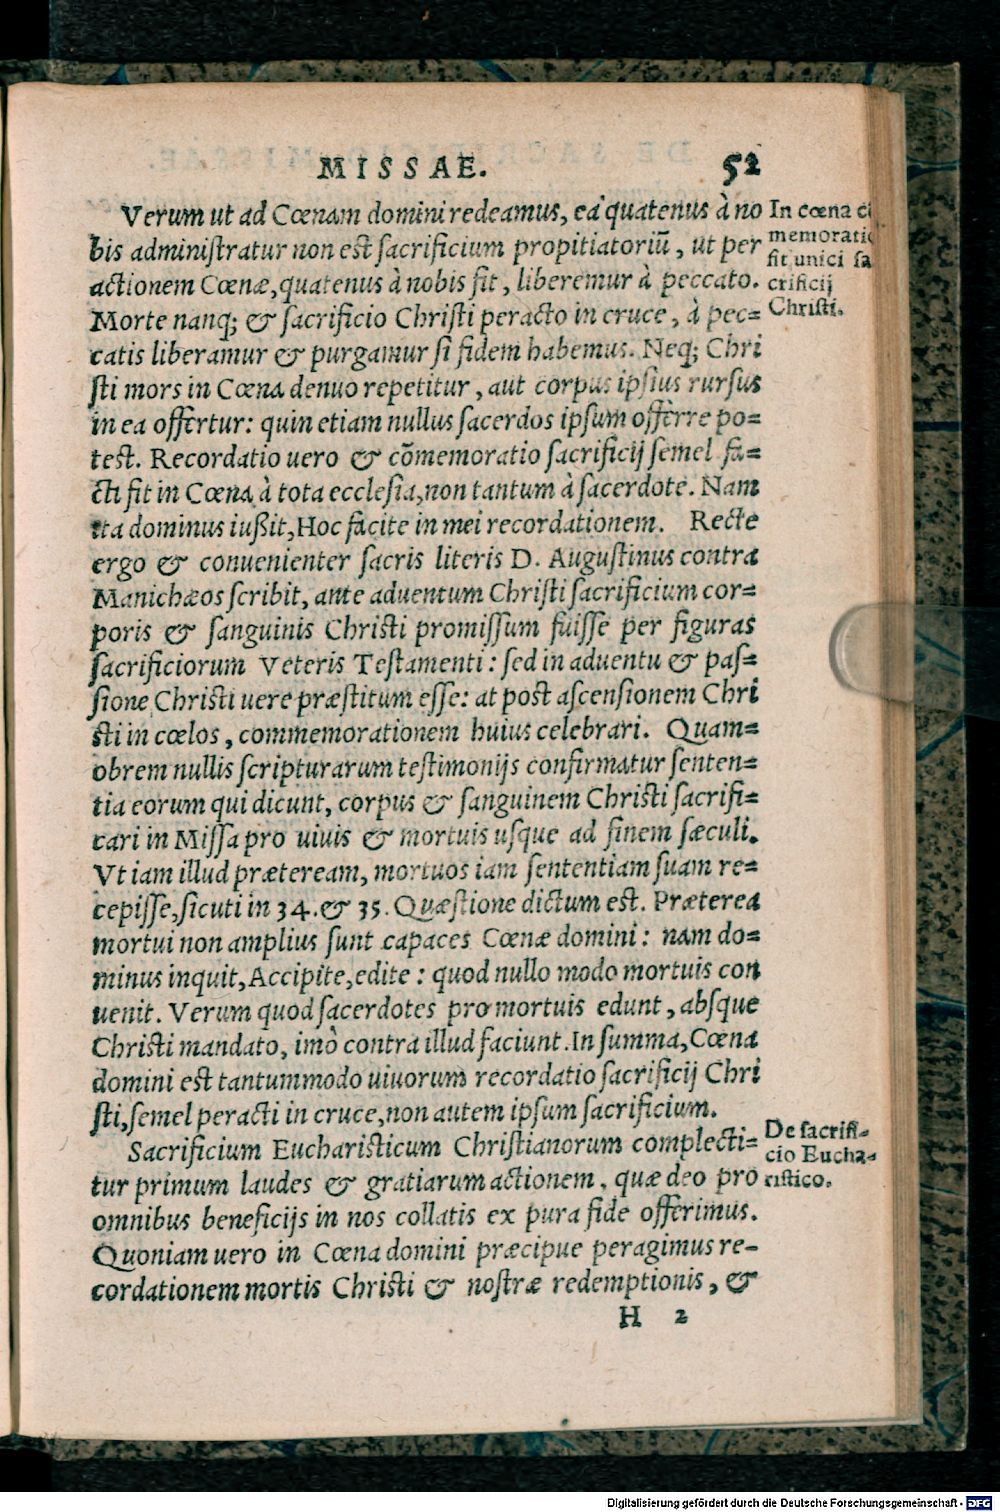 MISSAE. 52
Verum ut ad Cœnam domini redeamus, ea quatenus à no
bis administratur non est sacrificium propitiatoriũ, ut per
actionem Cœnæ, quatenus à nobis fit, liberemur à peccato.
Morte nanq; & sacrificio Christi peracto in cruce, à pec=
catis liberamur & purgamur si fidem habemus. Neq; Chri
sti mors in Cœna denuo repetitur, aut corpus ipsius rursus
in ea offertur: quin etiam nullus sacerdos ipsum offerre po=
test. Recordatio uero & cõmemoratio sacrificij semel fa=
cti fit in Cœna à tota ecclesia, non tantum à sacerdote. Nam
ita dominus iußit, Hoc facite in mei recordationem. Recte
ergo & conuenienter sacris literis D. Augustinus contra
Manichæos scribit, ante aduentum Christi sacrificium cor=
poris & sanguinis Christi promissum fuisse per figuras
sacrificiorum Veteris Testamenti: sed in aduentu & pas=
sione Christi uere præstitum esse: at post ascensionem Chri
sti in cœlos, commemorationem huius celebrari. Quam=
obrem nullis scripturarum testimonijs confirmatur senten=
tia eorum qui dicunt, corpus & sanguinem Christi sacrifi=
cari in Missa pro uiuis & mortuis usque ad finem sæculi.
Vt iam illud præteream, mortuos iam sententiam suam re=
cepisse, sicuti in 34. & 35. Quæstione dictum est. Præterea
mortui non amplius sunt capaces Cœnæ domini: nam do=
minus inquit, Accipite, edite: quod nullo modo mortuis con
uenit. Verum quod sacerdotes pro mortuis edunt, absque
Christi mandato, imò contra illud faciunt. In summa, Cœna
domini est tantummodo uiuorum recordatio sacrificij Chri
sti, semel peracti in cruce, non autem ipsum sacrificium.
Sacrificium Eucharisticum Christianorum complecti=
tur primum laudes & gratiarum actionem, quæ deo pro
omnibus beneficijs in nos collatis ex pura fide offerimus.
Quoniam uero in Cœna domini præcipue peragimus re-
cordationem mortis Christi & nostræ redemptionis, &
H 2
In cœna
memoratio
fit unici sa
crificij
Christi.
De sacrifi-
cio Eucha-
ristico.
Digitalisierung gefördert durch die Deutsche Forschungsgemeinschaft - DFG